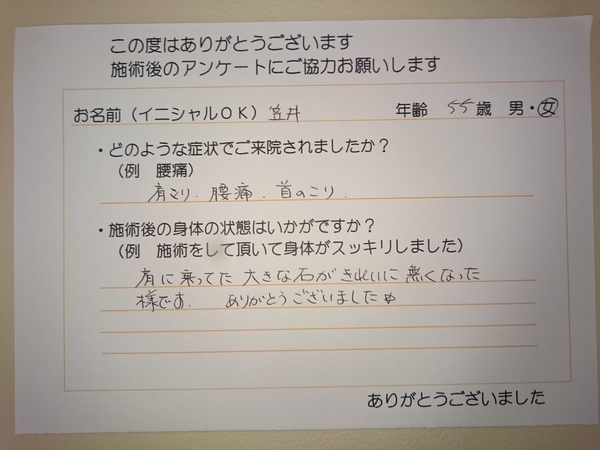 この度はありがとうございます
施術後のアンケートにご協力お願いします
お名前（イニシャルOK） 笠井 年齢 55歳 男・女
・どのような症状でご来院されましたか？
（例 腰痛）
肩こり．腰痛．首のこり．
・施術後の身体の状態はいかがですか？
（例 施術をして頂いて身体がスッキリしました）
肩に乗ってた大きな石がきれいに無くなった
様です． ありがとうございました
ありがとうございました